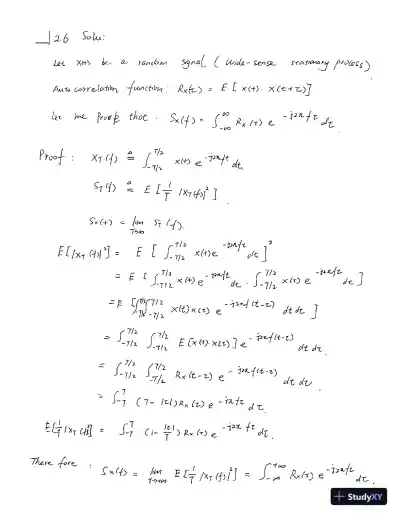 12.6 Solu:
Let x(t) be a random signal ( wide-sense stationary process)
Autocorrelation function: Rx(τ) = E [ x(t) · x(t+τ)]
let me proof that . Sx(f) = ∫_{-∞}^{∞} Rx(τ) e^{-j2πfτ} dτ
Proof : X_T(f) ≜ ∫_{-T/2}^{T/2} x(t) e^{-j2πft} dt.
S_T(f) ≜ E [ 1/T |X_T(f)|² ] .
Sx(f) = lim_{T→∞} S_T(f).
E[|X_T(f)|²] = E [ ∫_{-T/2}^{T/2} x(t) e^{-j2πft} dt ]²
= E [ ∫_{-T/2}^{T/2} x(t) e^{-j2πft} dt . ∫_{-T/2}^{T/2} x(τ) e^{-j2πfτ} dτ ]
= E [ ∫_{-T/2}^{T/2} x(t) x(τ) e^{-j2πf(t-τ)} dt dτ ]
= ∫_{-T/2}^{T/2} ∫_{-T/2}^{T/2} E[x(t) x(τ)] e^{-j2πf(t-τ)} dt dτ
= ∫_{-T/2}^{T/2} ∫_{-T/2}^{T/2} Rx(t-τ) e^{-j2πf(t-τ)} dt dτ .
= ∫_{-T}^{T} (T-|τ|) Rx(τ) e^{-j2πfτ} dτ.
E[1/T |X_T(f)|²] = ∫_{-T}^{T} (1-|τ|/T) Rx(τ) e^{-j2πfτ} dτ.
There fore : Sx(f) = lim_{T→∞} E[1/T |X_T(f)|²] = ∫_{-∞}^{+∞} Rx(τ) e^{-j2πfτ} dτ.
StudyXY